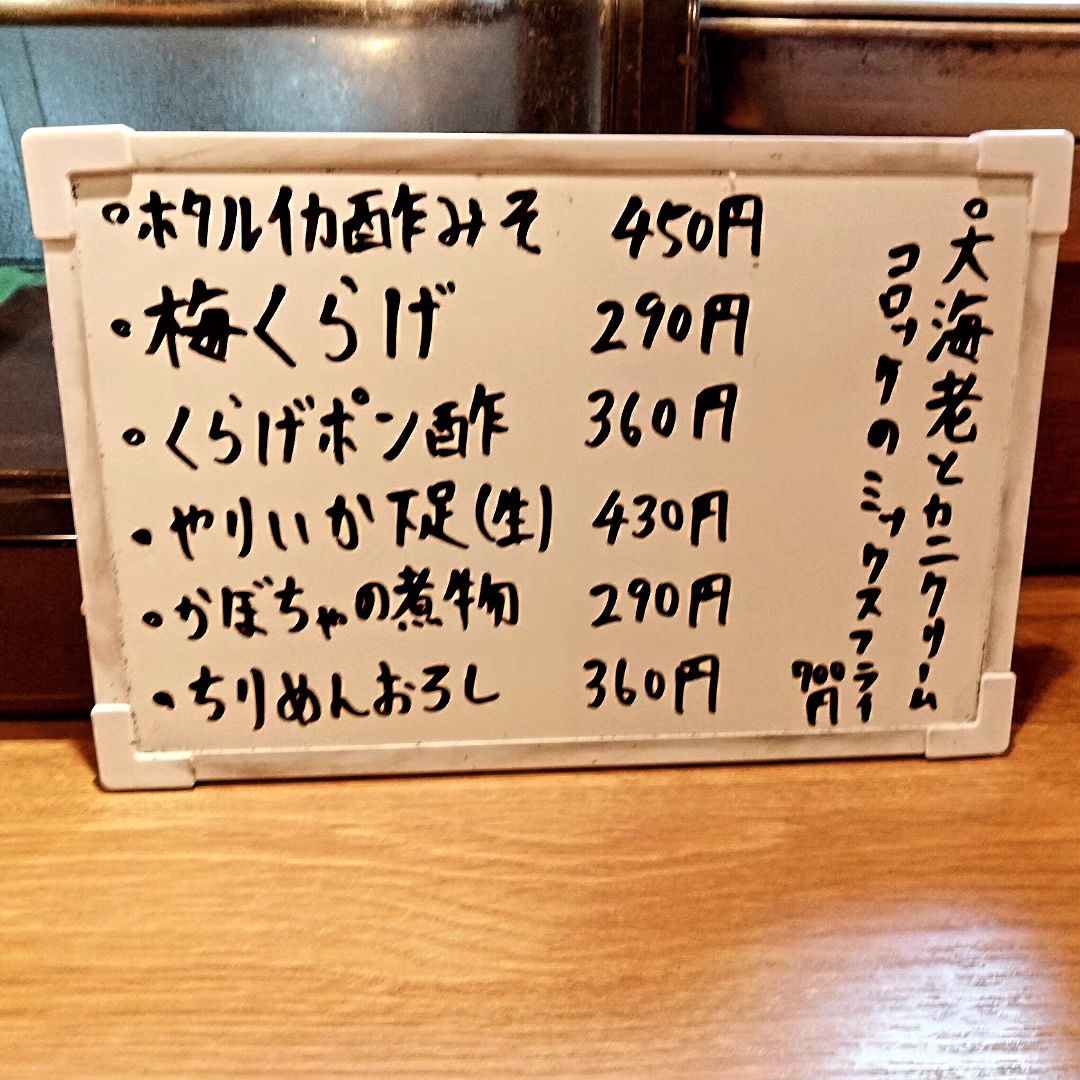 ・ホタルイカ酢みそ 450円
・梅くらげ 290円
・くらげポン酢 360円
・やりいか下足(生) 430円
・かぼちゃの煮物 290円
・ちりめんおろし 360円
・大海老とカニクリーム
コロッケのミックスフライ
700円